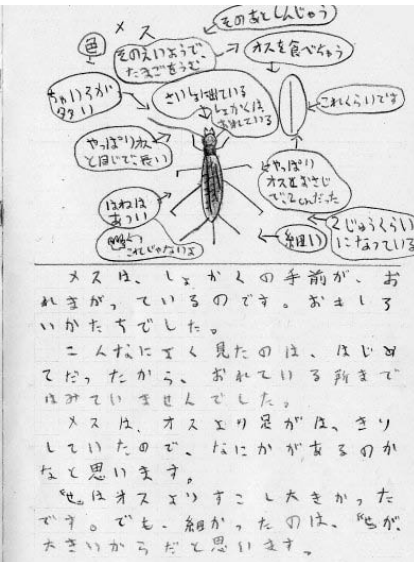 メス
そのあとしんじゃう
色
そのえいようで、
たまごをうむ
オスを食べちゃう
ちゃいろが
タタい
さいしょ出ている
しょかくは
おれている
これくらいです
やっぱりオス
とはじで長い
やっぱり
オスとおさじ
で、2cmだった
はねは
あつい
これじゃないよ
細い
2じゅうくらい
になっている
メスは、しょかくの手前が、お
れまがっているのです。おもしろ
いかたちでした。
こんなによく見たのは、はじめ
てだったから、おれている所まで
はみていませんでした。
メスは、オスより足がは、きり
していたので、なにかがあるのか
なと思います。
はオスよりすこし大きかった
です。でも、細かったのは、が、
大きいからだと思います。